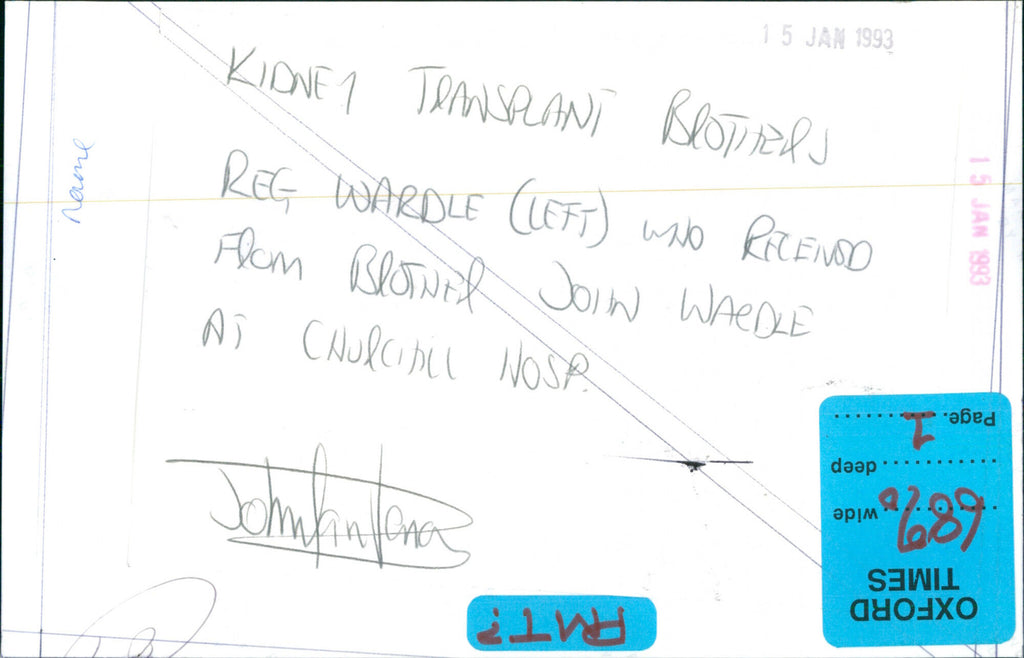 15 JAN 1993
KIDNEY TRANSPLANT BROTHERS
REG WARDLE (LEFT) WHO RECEIVED
FROM BROTHER JOHN WARDLE
AT CHURCHILL HOSP.
name
15 JAN 1993
OXFORD
TIMES
wide
689%
deep
Page. 1